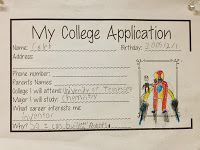 My College Application
Name: Caleb Birthday: 2005/2/1
Address:
Phone number:
Parents Names
College I will attend: University of
Major I will study: Chemistry
What career interests me:
Inventor
Why? So I can build